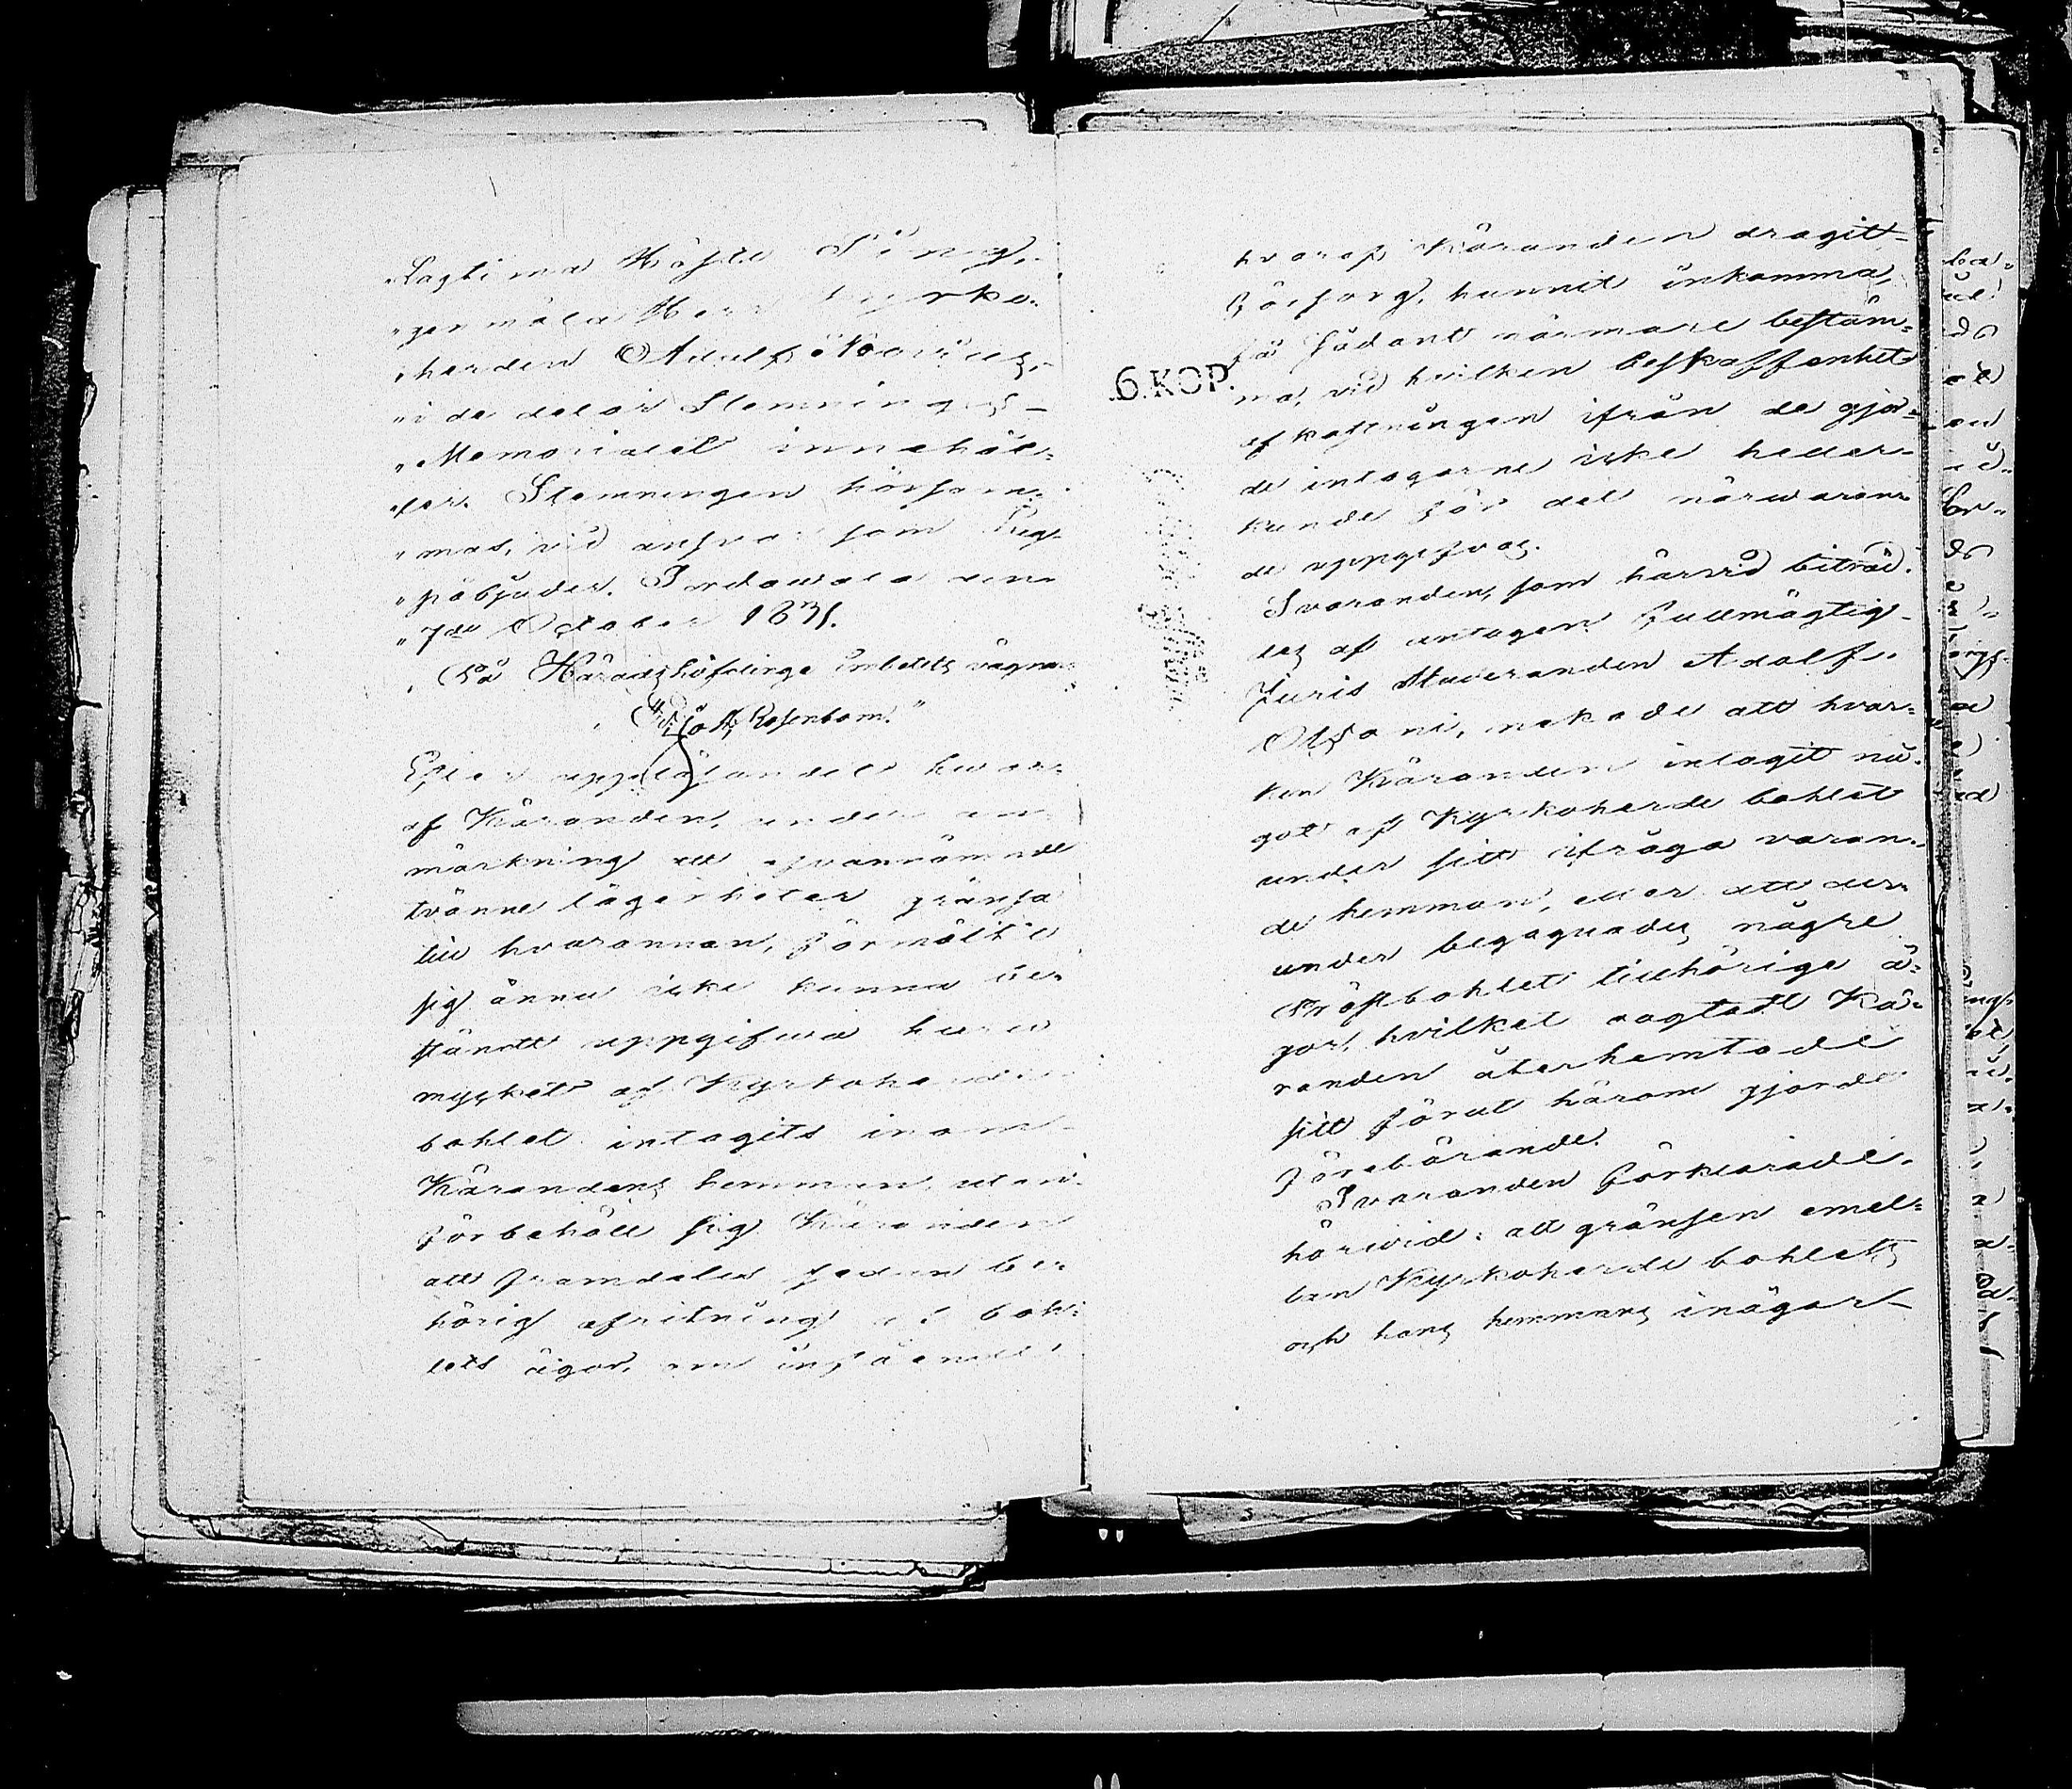 "Lagtima Höste Ting,
"genmäla Herr Kyrko-
"herden Adolf
"i de delar Stemnings-
"Memorialet innehål-
"ler. Stemningen hörsam-
"mas, vid ansvar som Lag
"påbjuder. den
"7de October 1831.
"På Häradshöfdinge embetets vägnar
Rosenbom."
Efter uppläsandet hwar-
af Käranden, under an-
märkning att ofvannämnde
tvänne lägenheter gränsa
till hvarannan, förmälte
sig ännu icke kunna
ståndt uppgifwa huru
mycket af Kyrkoherde
bohlet intagits inom
Kärandens hemman, utan
förbehöll sig Käranden
att framdeles sedan be-
hörig afritning af boh-
lets ägor,
hvarof Käranden dragit
försorg, hunnit inkomma,
få sådant närmare bestäm-
6.KOP.
ma, vid hvilken beskaffenhet
afkastningen ifrån de gjor-
de intagorne icke heller
kunde för det närwaran-
de uppgifvas.
Svaranden, som härvid biträd-
des af antagen Fullmägtig
Juris Studeranden Adolf
nekade att hvar-
ken Käranden intagit nå-
got af Kyrkoherde bohlet
under sitt ifråga varan-
de hemman, eller att der-
under begagnades någre
Prästbohlet tillhörige ä-
gor, hvilket agtadt Kä-
randen återhemtade
sitt förut härom gjorde
förebärande.
Svaranden förklarade
härwid: att gränsen emel-
lan Kyrkoherde bohlets
och hans hemmans inägor